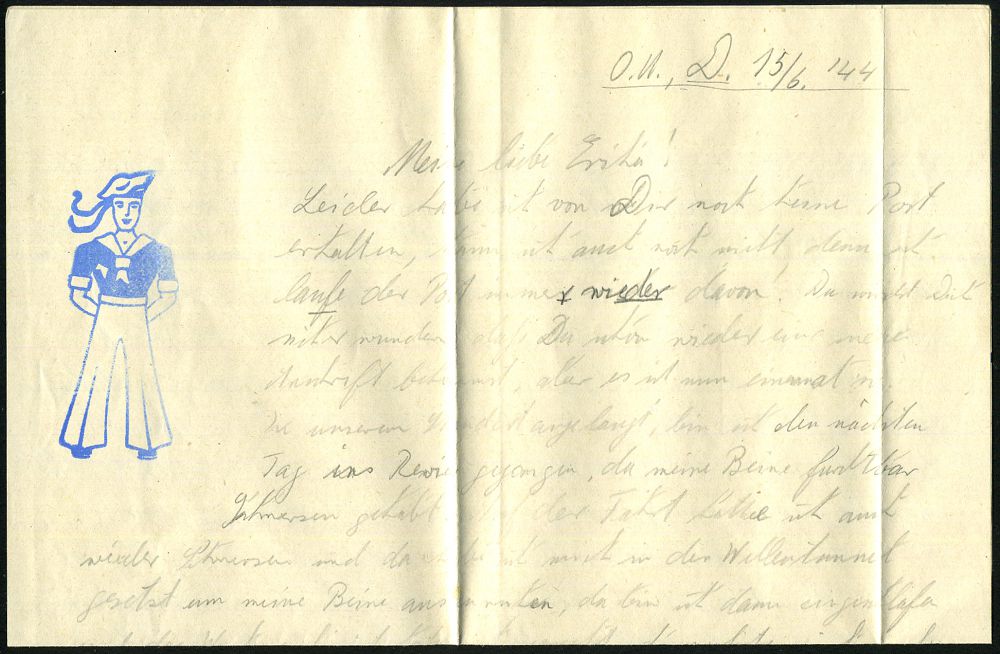 O.U., D. 15/6. '44
Meine liebe Erika!
Leider habe ich von Dir noch keine Post
erhalten, kann ich auch noch nicht denn ich
laufe der Post immer wieder davon. Du wirst Dich
sicher wundern, daß Du schon wieder eine neue
Anschrift bekommst, aber es ist nun einmal so.
in unserem angelangt, bin ich den nächsten
Tag ins Revier gegangen, da meine Beine furchtbar
Schmerzen gehabt. Auf der Fahrt hatte ich auch
wieder Schmerzen und da habe ich mich in den Wellentunnel
gesetzt um meine Beine auszuruhen, da bin ich dann eingeschlafen